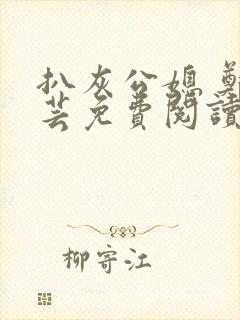 扒灰公媳 鄭
芸免費閱讀
柳寄江